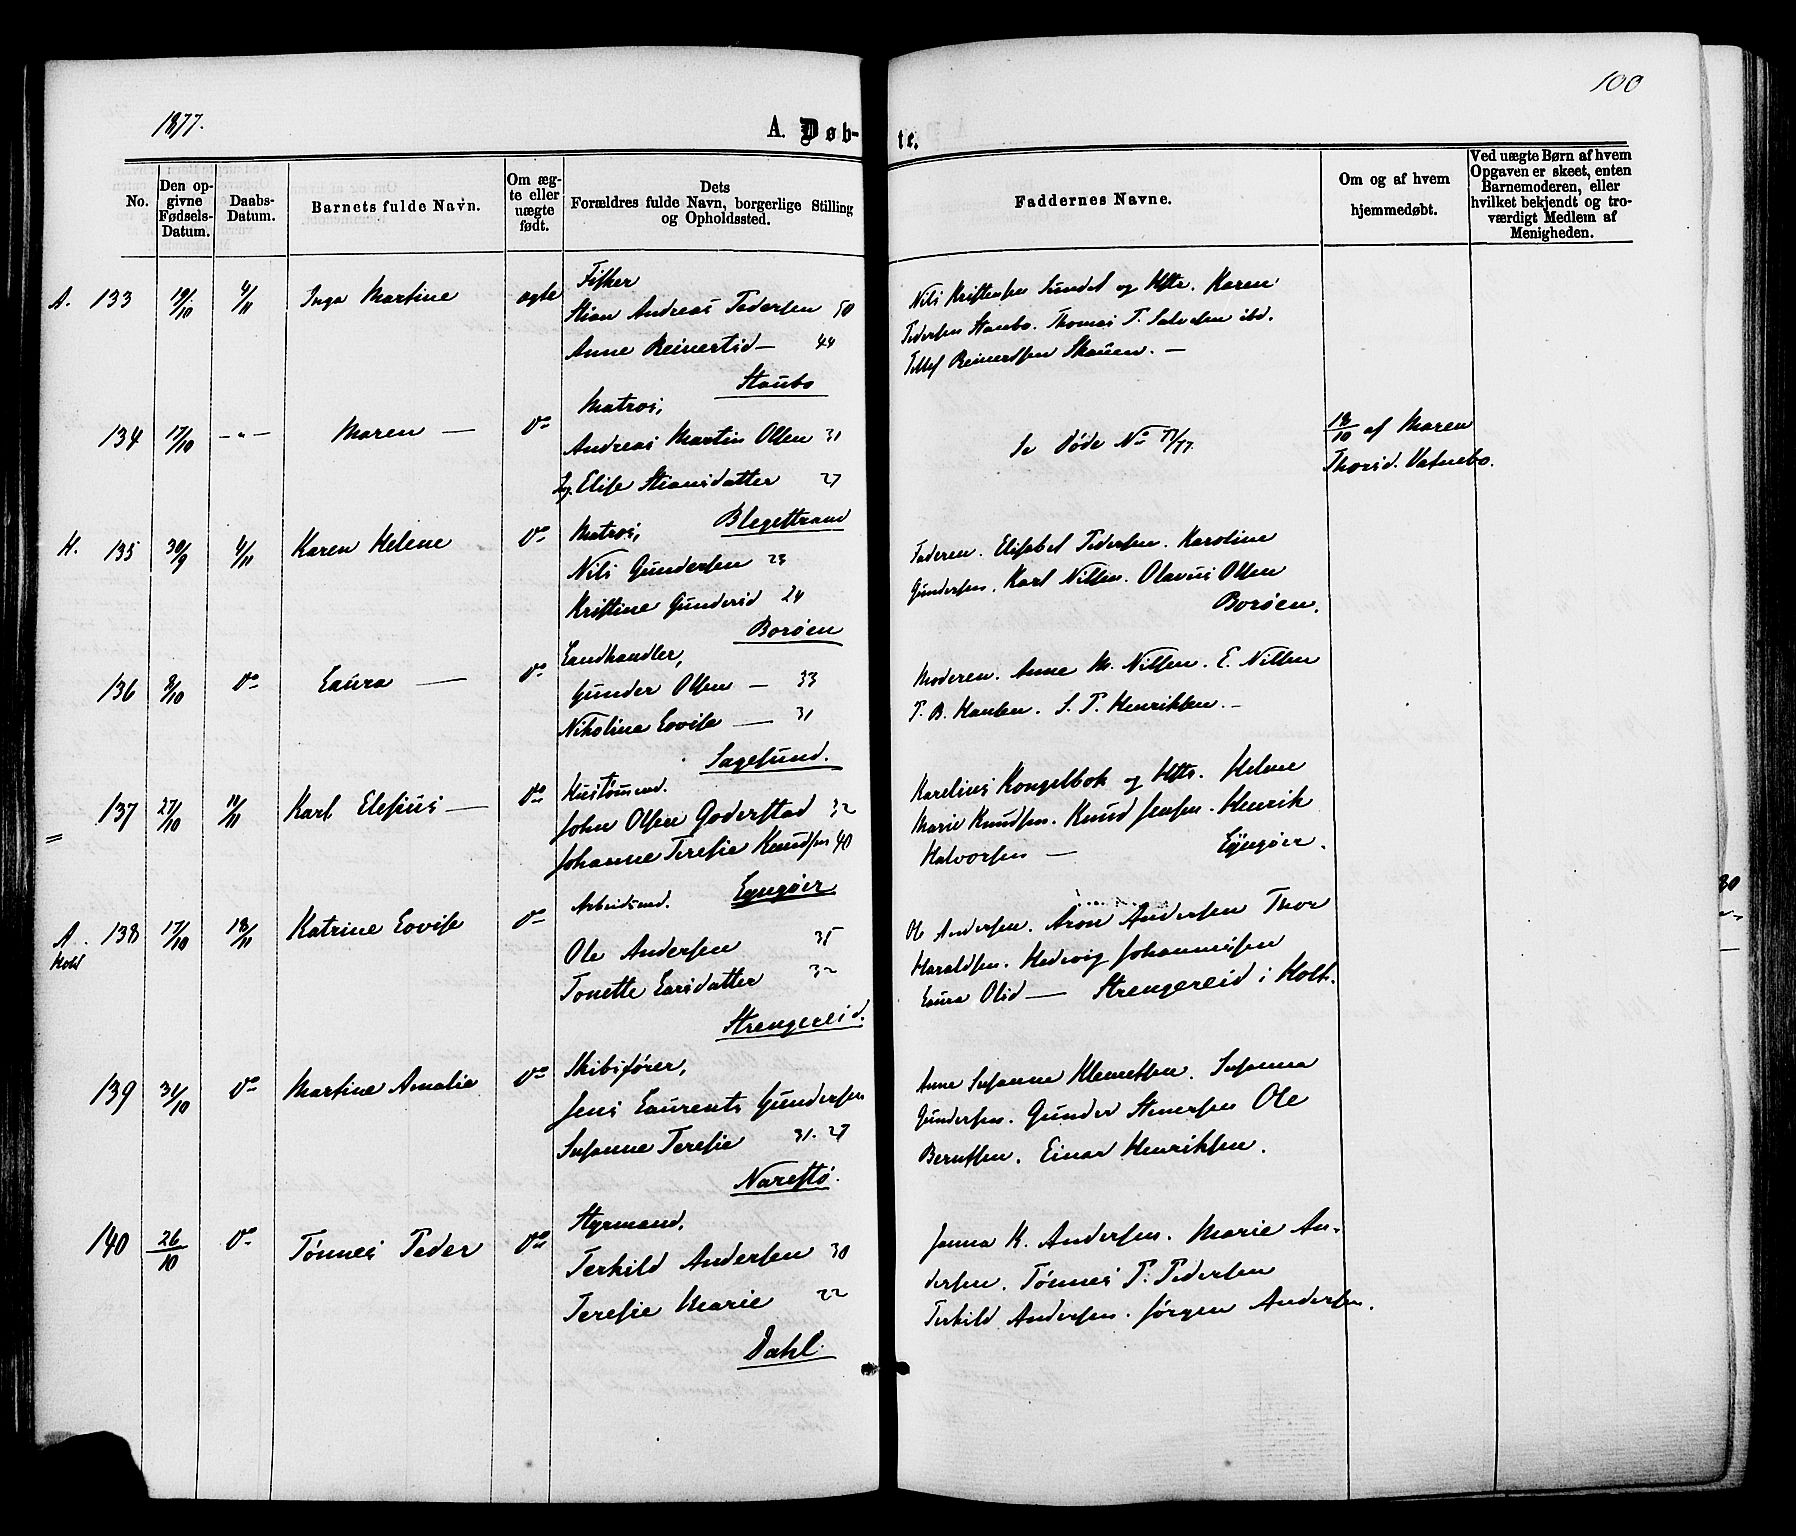 100
1877.
A. Døb-
te.
No.
Den op-
givne
Fødsels-
Datum.
Daabs-
Datum.
Barnets fulde Navn.
Om æg-
te eller
uægte
født.
Dets
Forældres fulde Navn, borgerlige Stilling
og Opholdssted.
Faddernes Navne.
Om og af hvem
hjemmedøbt.
Ved uægte Børn af hvem
Opgaven er skeet, enten
Barnemoderen, eller
hvilket bekjendt og tro-
værdigt Medlem af
Menigheden.
A. 133 19/10 4/11 Inga Martine ægte
Fisker
Stian Andreas Pedersen 50
Anne Reinertsd — 44
Staubo
Nils Kristensen Sundet og Hstr. Karen
Pedersen Staubo. Thomas T. Salvesen ibd.
Tellef Reinertsen Skauen. —
134 17/10 - " - Maren — do
Matros,
Andreas Martin Olsen 31
Ing. Elise Stiansdatter 27
Blegestrand
Se Døde No 77/77.
18/10 af Maren
Thorsd. Vatnebo.
H. 135 30/9 4/11 Karen Helene do
Matros,
Nils Gundersen 23
Kristine Gundersd 24
Borøen
Faderen. Elisabet Pedersen. Karoline
Gundersen. Karl Nilsen. Olavus Olsen
Borøen.
136 8/10 do Laura — do
Landhandler,
Gunder Olsen — 33
Nikoline Lovise — 31
Sagesund.
Moderen. Anne M. Nilsen. E. Nilsen
T. B. Hansen. S. T. Henriksen. -
= 137 27/10 11/11 Karl Elesius — do
Hustømmd.
John Olsen Goderstad 32
Johanne Teresie Knudsen 40
Lyngøer
Karelius Kongelbok og Hstr. Helene
Marie Knudsen. Knud Jensen. Henrik
Halvorsen — Lyngøer.
A. Holt 138 17/10 18/11 Katrine Lovise do
Arbeidsmd.
Ole Andersen 35
Tonette Larsdatter 32
Strengereid.
Ole Andersen. Aron Andersen Thor
Haraldsen. Hedevig Johannessen
Laura Olsd — Strengereid i Holt.
139 31/10 do Martine Amalie do
Skibsfører,
Jens Laurents Gundersen
Susanne Teresie 31. 27
Narestø.
Anne Susanne Klemetsen. Susanna
Gundersen. Gunder Stenersen Ole
Berntsen. Einar Henriksen.
140 26/10 do Tønnes Peder do
Styrmand,
Terkild Andersen 30
Teresie Marie 22
Dahl.
Janna K. Andersen. Marie An-
dersen. Tønnes P. Pedersen
Terkild Andersen. Jørgen Andersen.
30